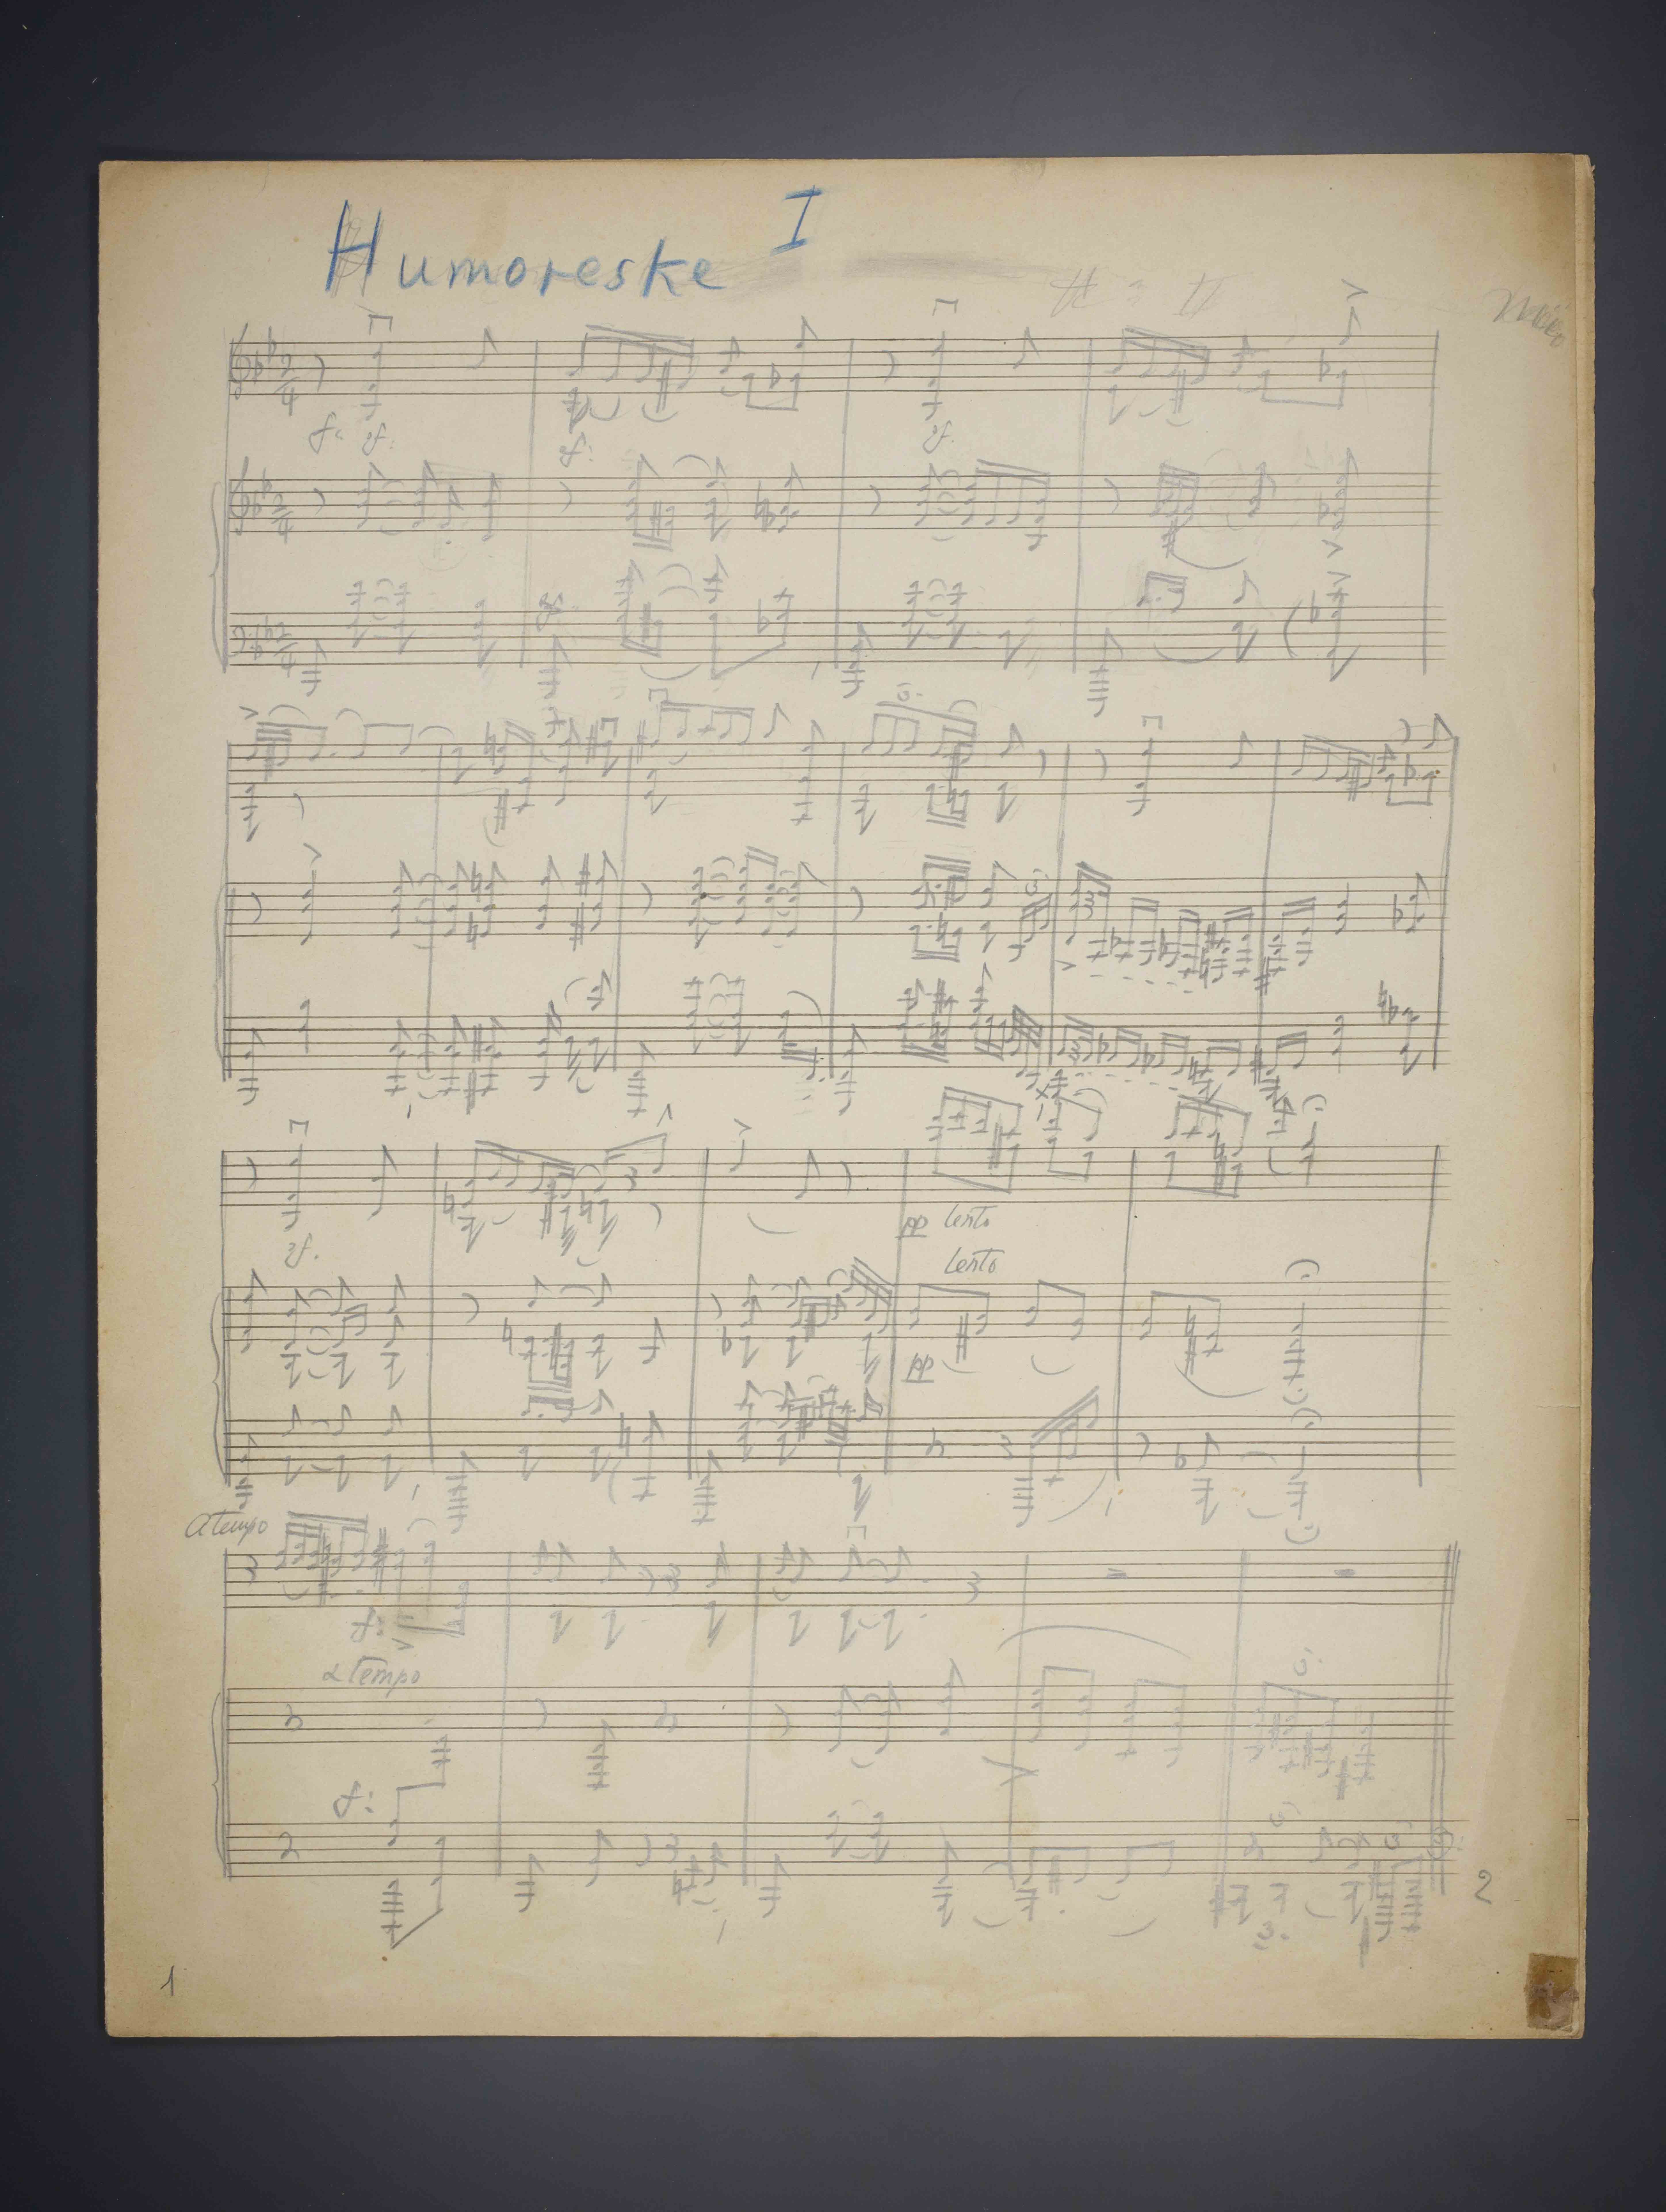 Humoreske I
f. sf.
sf.
sf.
sf.
sf.
pp lento
Lento
pp
a tempo
f.
a tempo
f.
2
1